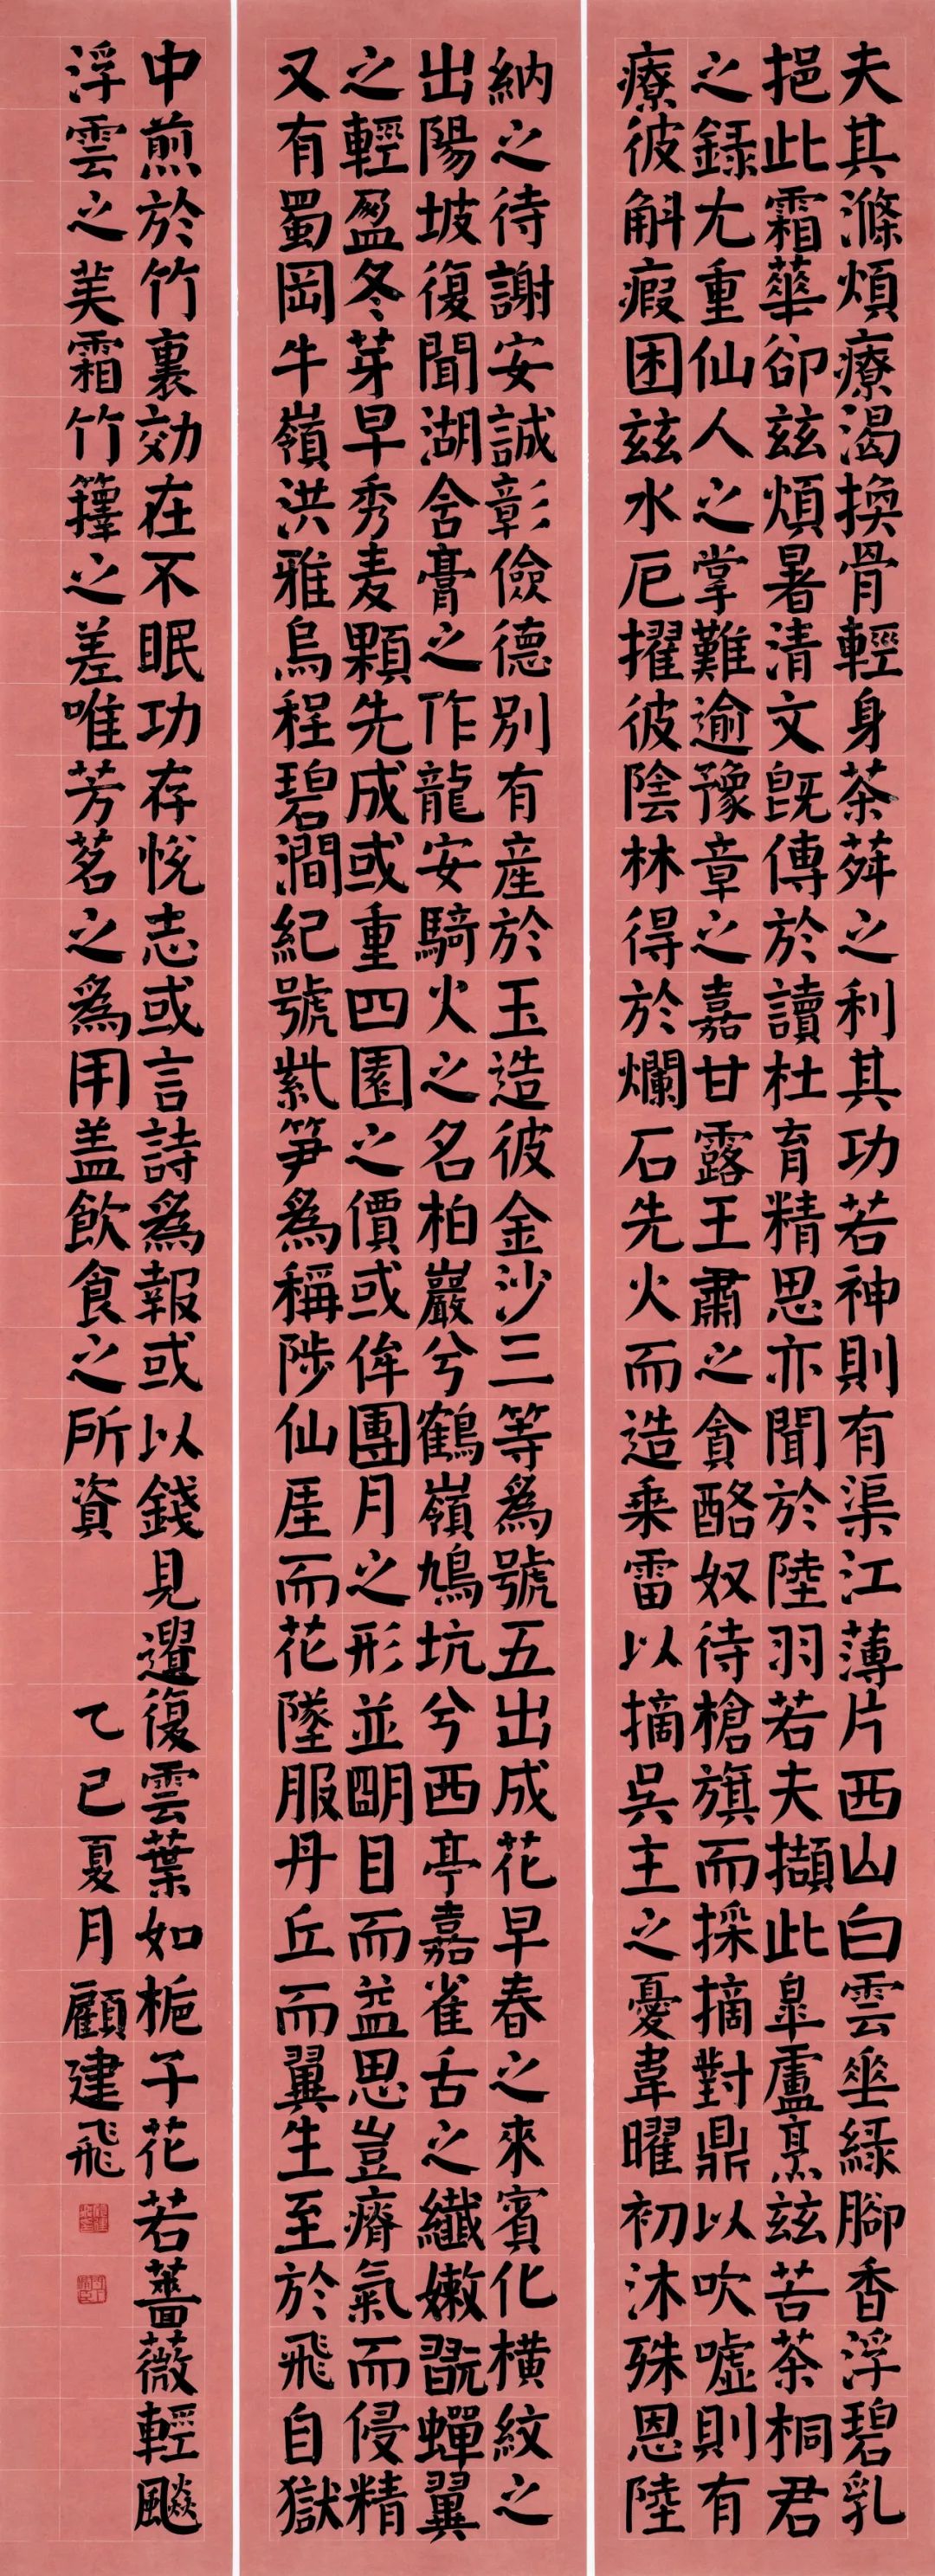 夫其滌煩療渴換骨輕身茶荈之利其功若神則有渠江薄片西山白雲垂綠腳香浮碧乳
挹此霜華卻茲煩暑清文既傳於讀杜育精思亦聞於陸羽若夫擷此皐盧烹茲苦茶桐君
之錄尤重仙人之掌難逾豫章之嘉甘露王肅之貪酪奴待槍旗而採摘對鼎以吹噓則有
療彼斛瘕困茲水厄擢彼陰林得於爛石先火而造乘雷以摘吳主之憂韋曜初沐殊恩陸
納之待謝安誠彰儉德別有産於玉造彼金沙三等爲號五出成花早春之來賓化橫紋之
出陽坡復聞湖含膏之作龍安騎火之名柏巖兮鶴嶺鳩坑兮西亭嘉雀舌之纖嫩翫蟬翼
之輕盈冬芽早秀麦顆先成或重四園之價或侔團月之形並明目而益思豈瘠氣而侵精
又有蜀岡牛嶺洪雅烏程碧澗紀號紫笋爲稱陟仙厓而花墜服丹丘而翼生至於飛自獄
中煎於竹裏効在不眠功存悅志或言詩爲報或以錢見遺復雲葉如梔子花若薔薇輕飈
浮雲之美霜竹籜之差唯芳茗之爲用盖飲食之所資
乙巳夏月顧建飛